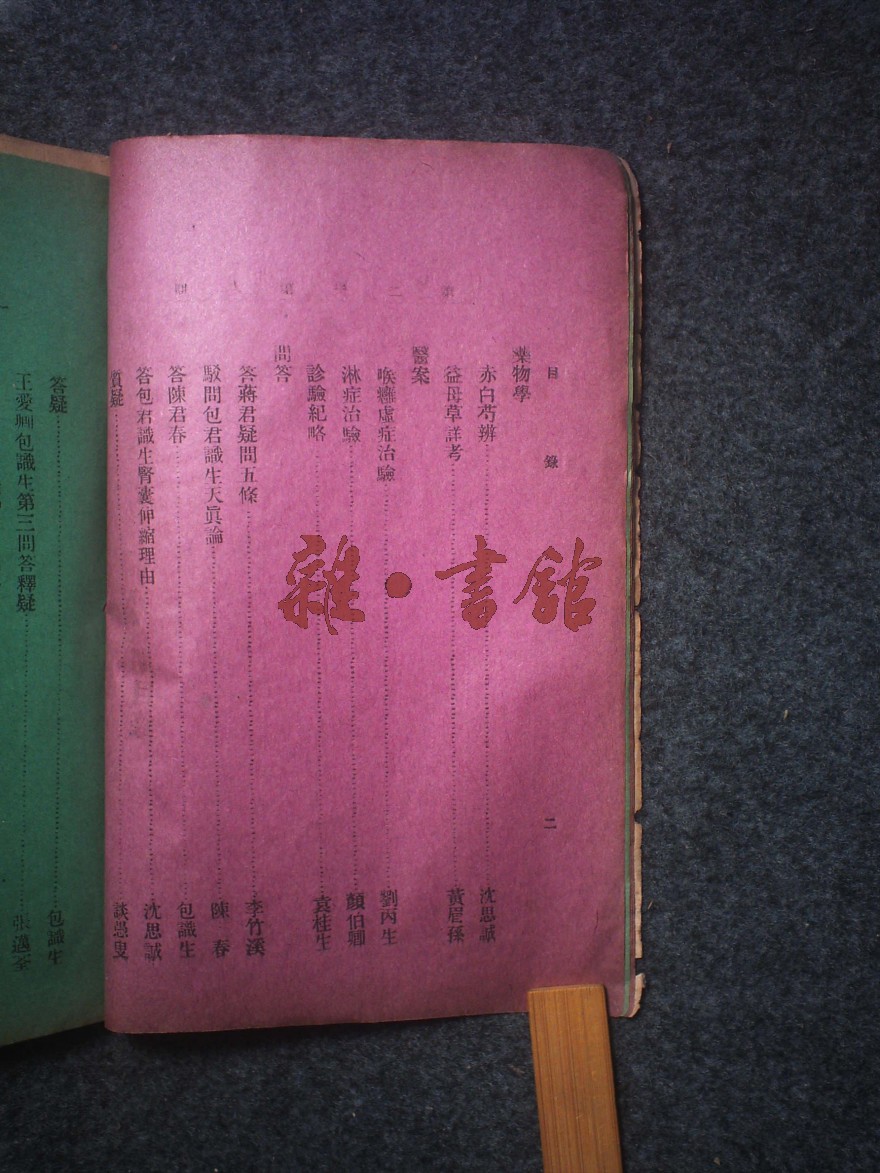 目錄 二
藥物學
赤白芍辨 沈思誠
益母草詳考 黃眉孫
醫案
喉癰虛症治驗 劉丙生
淋症治驗 顏伯卿
診驗紀略 袁桂生
問答
答蔣君疑問五條 李竹溪
駁問包君識生天眞論 陳春
答陳君春 包識生
答包君識生腎囊伸縮理由 沈思誠
質疑 談愚叟
答疑 包識生
王愛卿包識生第三問答釋疑
雜·書館